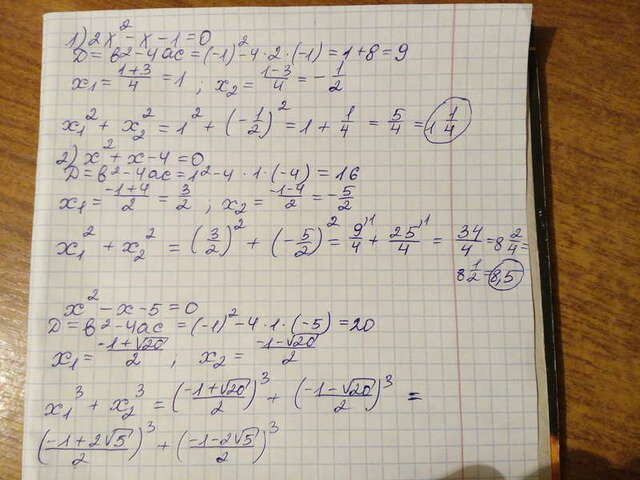 1) 2x² - x - 1 = 0
D = b² - 4ac = (-1)² - 4 · 2 · (-1) = 1 + 8 = 9
x₁ = (1+3)/4 = 1 ; x₂ = (1-3)/4 = -1/2
x₁² + x₂² = 1² + (-1/2)² = 1 + 1/4 = 5/4 = 1 1/4
2) x² + x - 4 = 0
D = b² - 4ac = 1² - 4 · 1 · (-4) = 16
x₁ = (-1+4)/2 = 3/2 ; x₂ = (-1-4)/2 = -5/2
x₁² + x₂² = (3/2)² + (-5/2)² = 9/4 + 25/4 = 34/4 = 8 2/4 =
8 1/2 = 8,5
x² - x - 5 = 0
D = b² - 4ac = (-1)² - 4 · 1 · (-5) = 20
x₁ = (-1+√20)/2 ; x₂ = (-1-√20)/2
x₁³ + x₂³ = ((-1+√20)/2)³ + ((-1-√20)/2)³ =
((-1+2√5)/2)³ + ((-1-2√5)/2)³